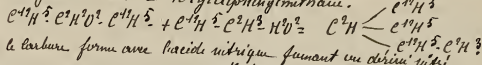 C¹²H⁵. C²H²O². C¹²H⁵ + C¹²H⁵. C²H³. H²O² = C²H C¹²H⁵
C¹²H⁵
C¹²H⁵. C²H³
le carbure forme avec l'acide nitrique fumant un dérivé nitré